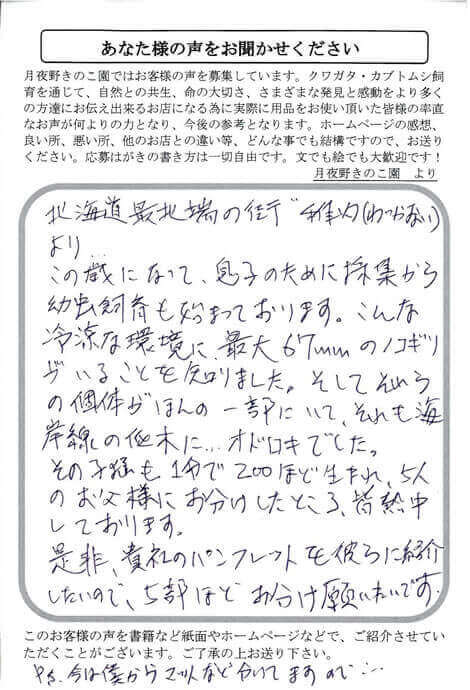 あなた様の声をお聞かせください
月夜野きのこ園ではお客様の声を募集しています。クワガタ・カブトムシ飼
育を通じて、自然との共生、命の大切さ、さまざまな発見と感動をより多く
の方達にお伝え出来るお店になる為に実際に用品をお使い頂いた皆様の率直
なお声が何よりの力となり、今後の参考となります。ホームページの感想、
良い所、悪い所、他のお店との違い等、どんな事でも結構ですので、お送り
ください。応募はがきの書き方は一切自由です。文でも絵でも大歓迎です！
月夜野きのこ園　より
北海道最北端の街"稚内(わっかない)
より…
この歳になって、息子のために採集から
幼虫飼育も始まっております。こんな
冷涼な環境に、最大67mmのノコギリ
がいることを知りました。そしてそれら
の個体がほんの一部にいて、それも海
岸線の低木に…オドロキでした。
その子孫も1匹で200ほど生まれ、5人
のお父様にお分けしたところ、皆熱中
しております。
是非、貴社のパンフレットを彼らに紹介
したいので、5部ほどお分け願いたいです。
このお客様の声を書籍など紙面やホームページなどで、ご紹介させてい
ただくことがございます。ご了承の上お送り下さい。
P.S. 今は僕からマットなど分けてますので…